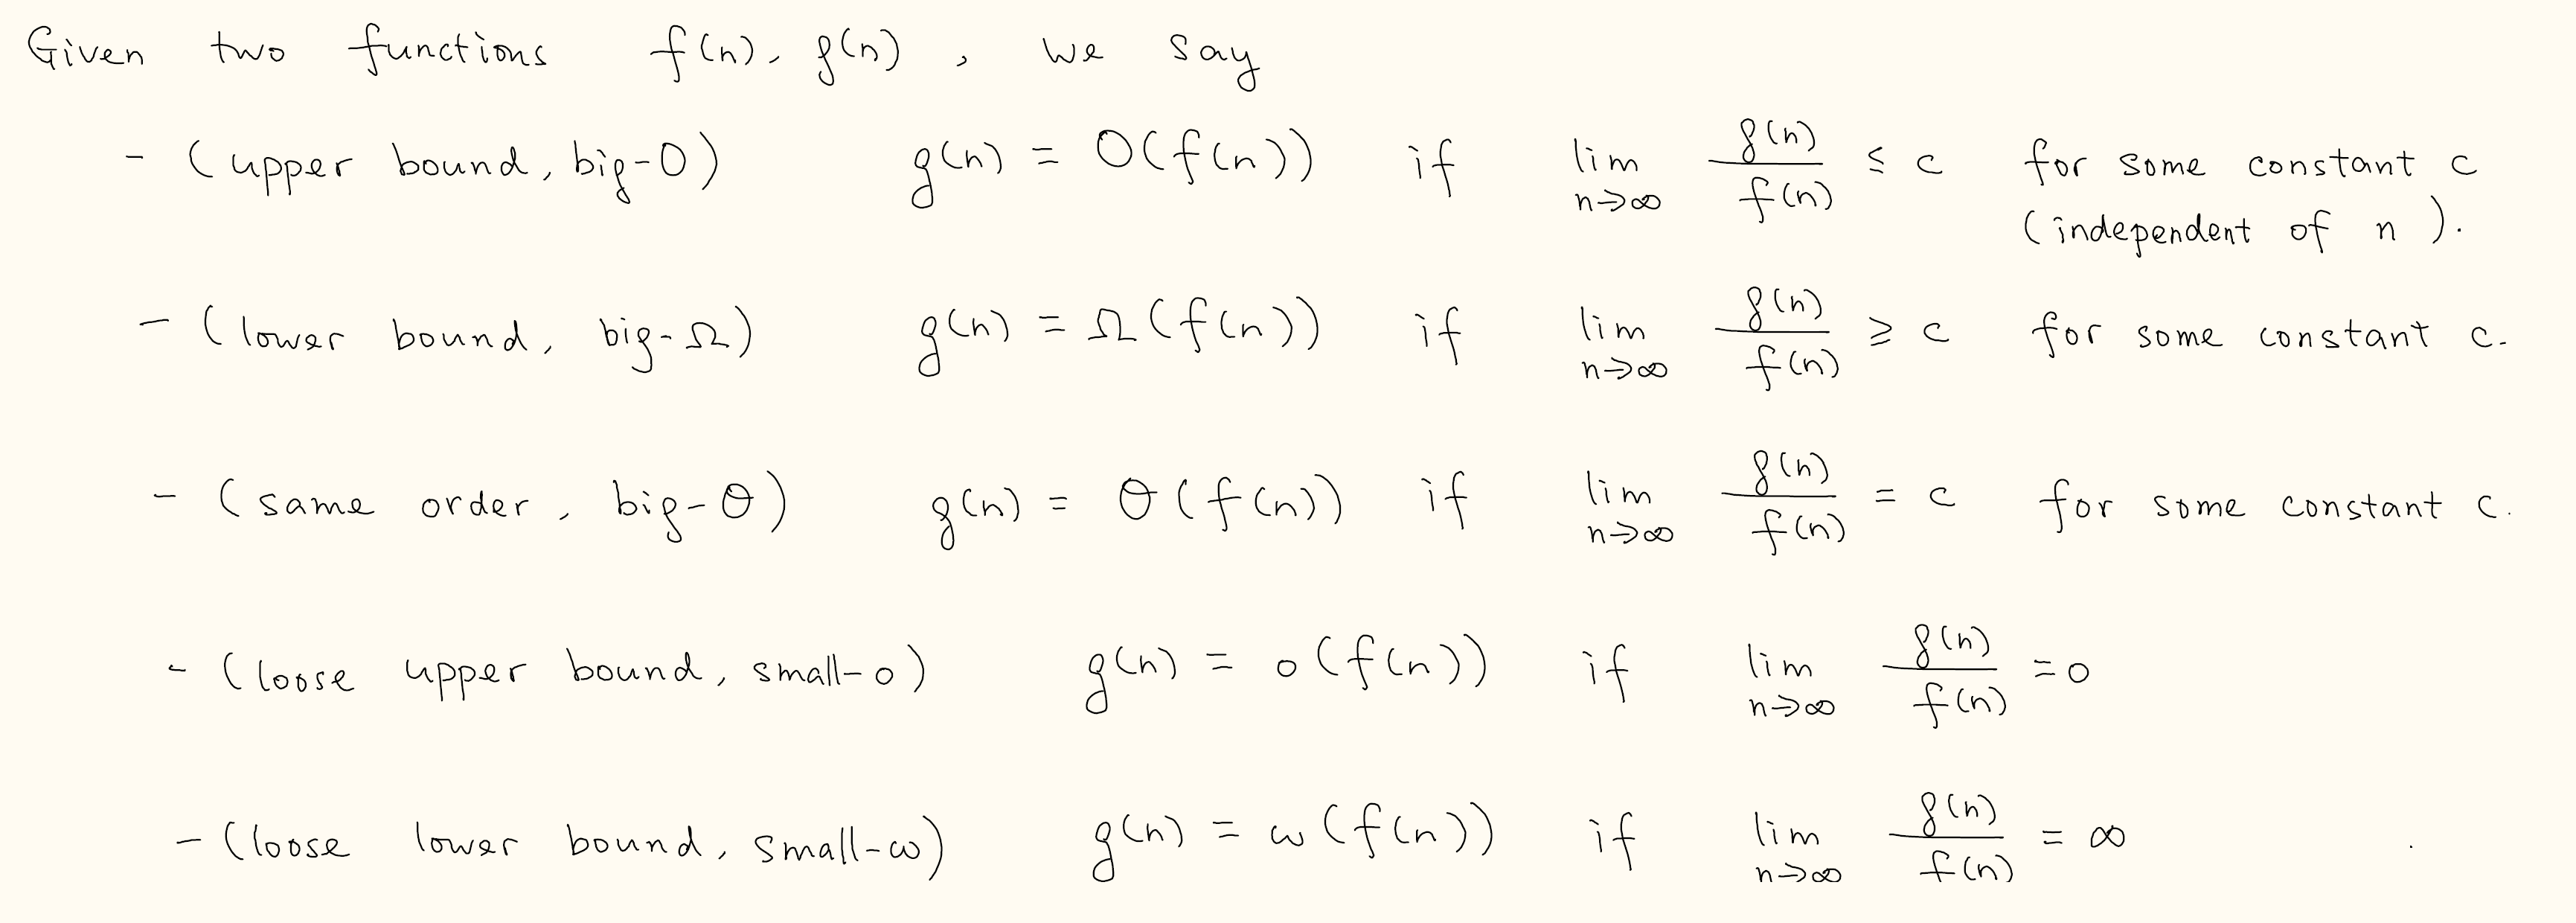 Given two functions f(n), g(n), we say
- (upper bound, big-O) g(n) = O(f(n)) if lim n→∞ g(n)/f(n) ≤ c for some constant c
(independent of n).
- (lower bound, big-Ω) g(n) = Ω(f(n)) if lim n→∞ g(n)/f(n) ≥ c for some constant c.
- (same order, big-Θ) g(n) = Θ(f(n)) if lim n→∞ g(n)/f(n) = c for some constant c.
- (loose upper bound, small-o) g(n) = o(f(n)) if lim n→∞ g(n)/f(n) = 0
- (loose lower bound, small-ω) g(n) = ω(f(n)) if lim n→∞ g(n)/f(n) = ∞